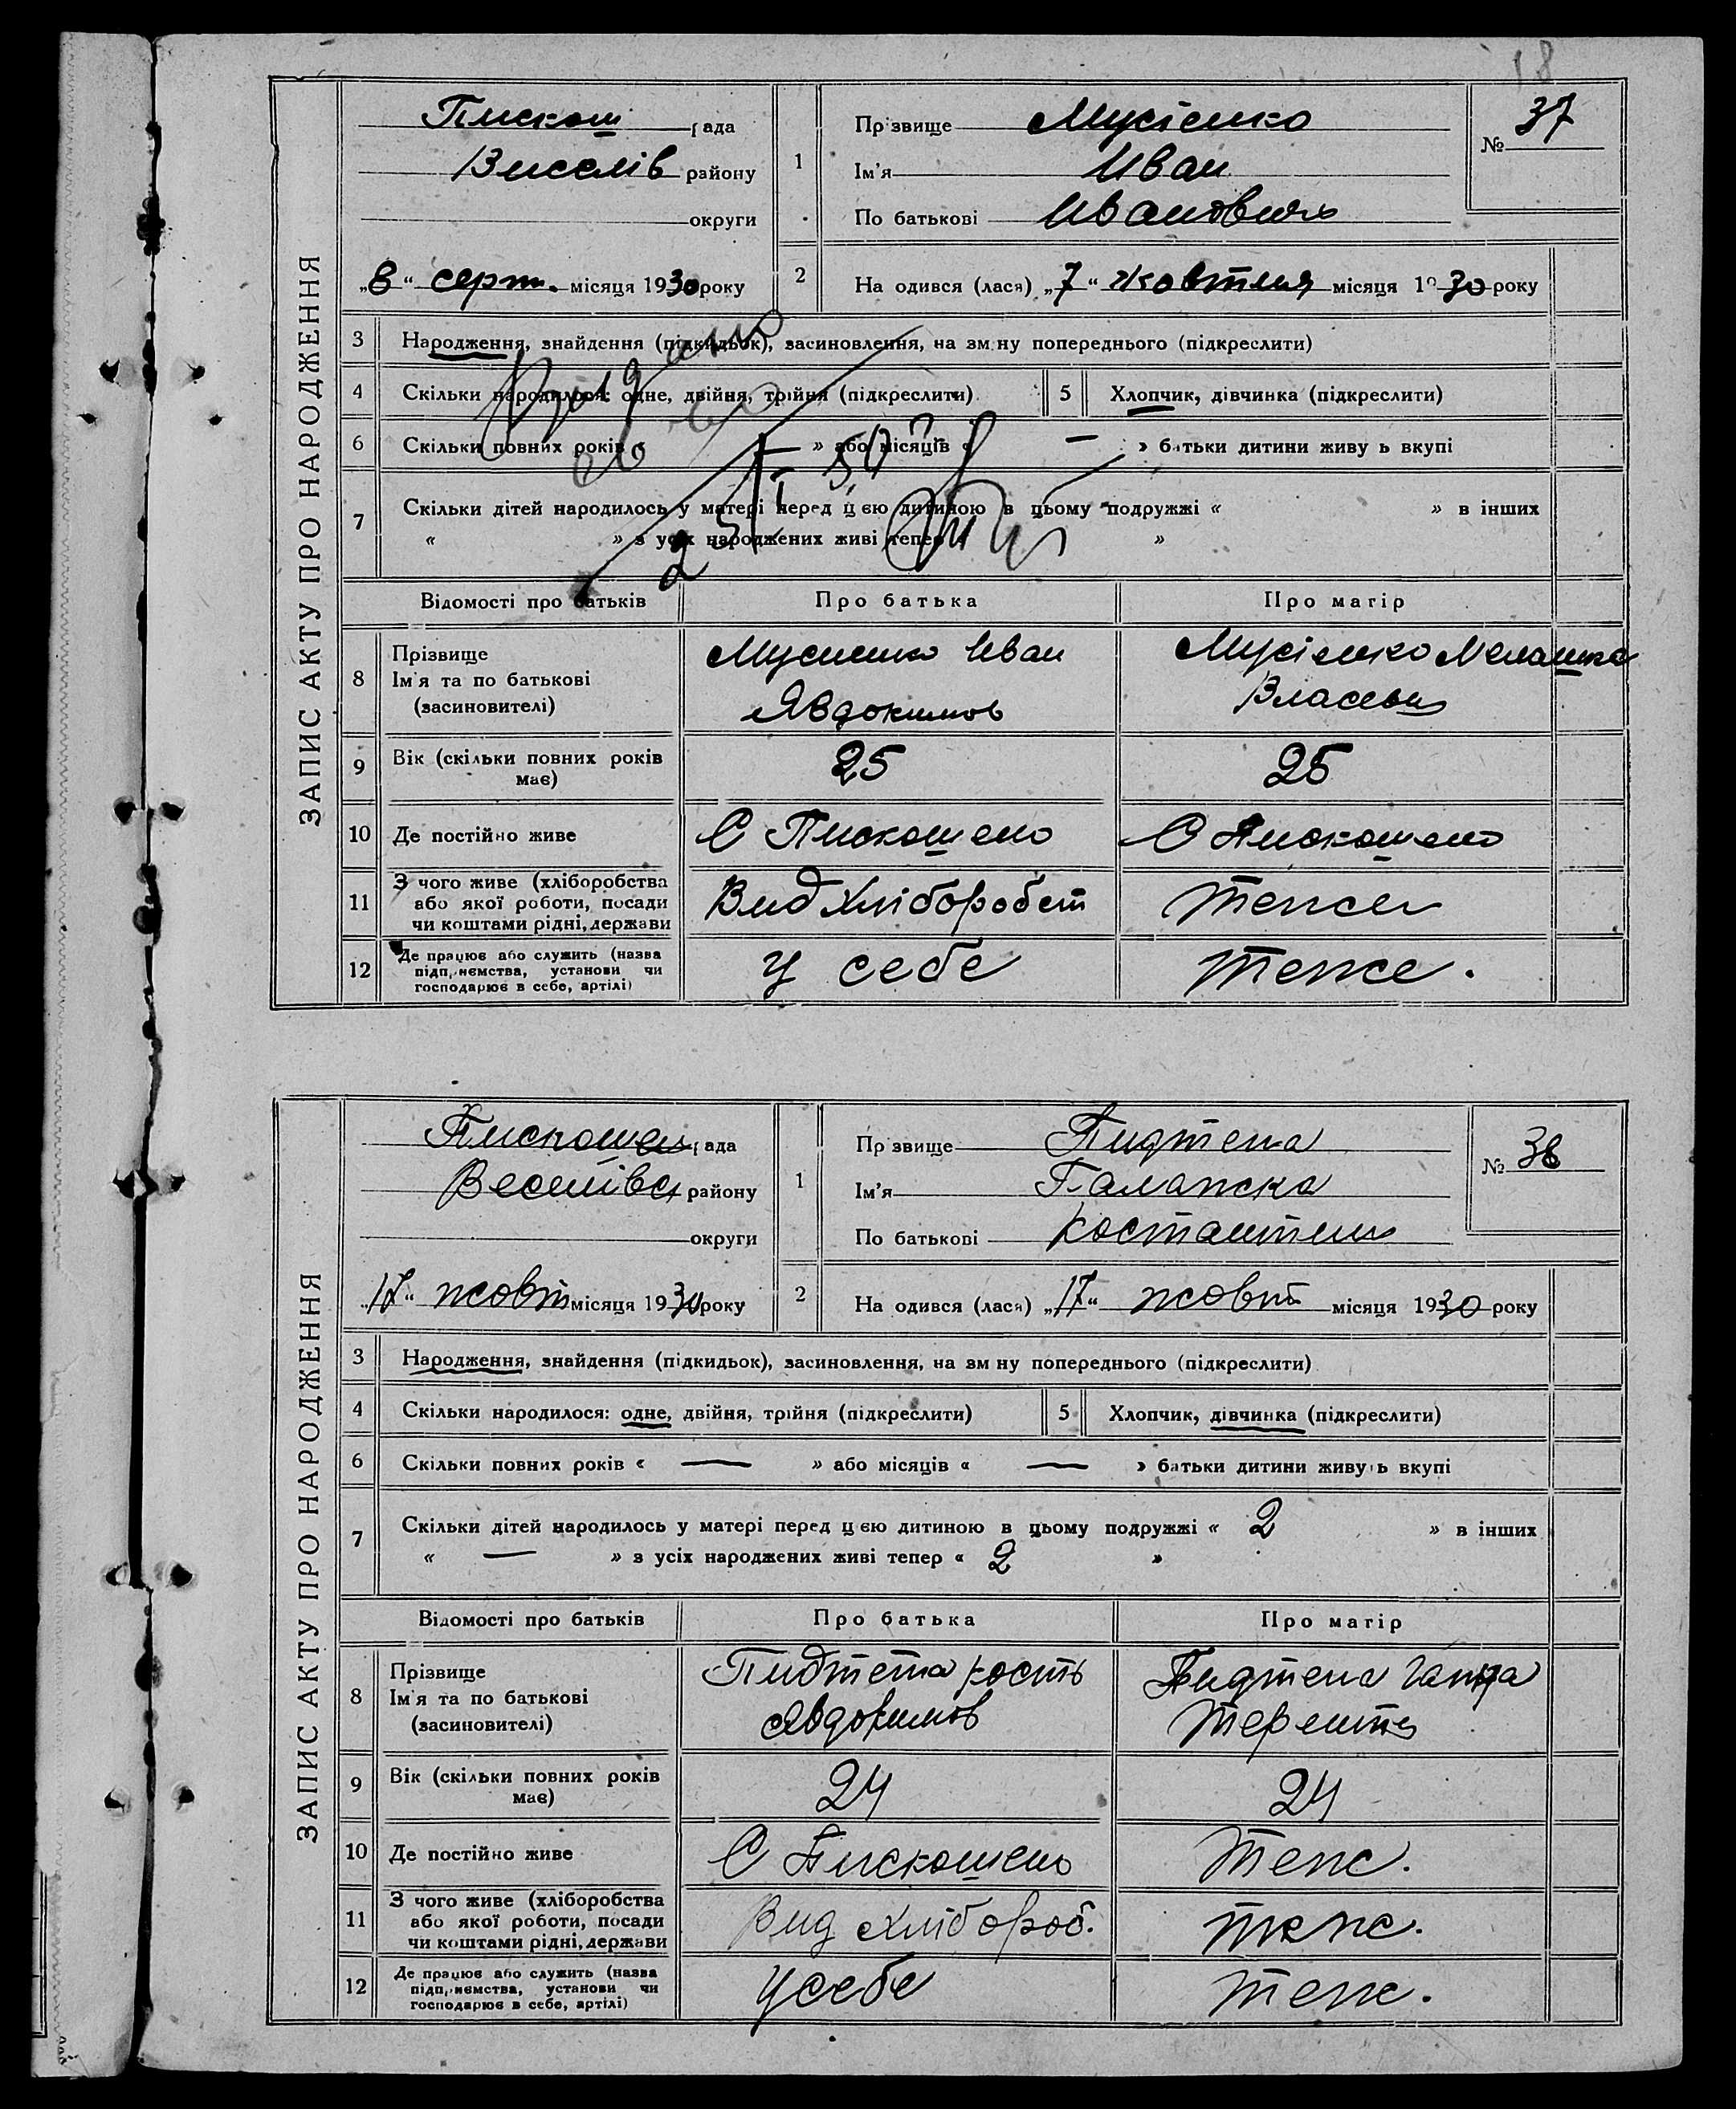 18
ЗАПИС АКТУ ПРО НАРОДЖЕННЯ
Пискош рада
Виселів району
округи
„8“ серп. місяця 1930 року
1
Прізвище Мусієнко
Ім'я Иван
По батькові Иванович
№ 37
2 На одився (лася) „7“ жовтня місяця 1930 року
3 Народження, знайдення (підкидьок), засиновлення, на зм ну попереднього (підкреслити)
4 Скільки народилося: одне, двійня, трійня (підкреслити) 5 Хлопчик, дівчинка (підкреслити)
6 Скільки повних років « » або місяців « — » батьки дитини живу ь вкупі
7 Скільки дітей народилось у матері перед цією дитиною в цьому подружжі « » в інших
« » з усіх народжених живі тепер « »
Видано
Відомості про батьків Про батька Про матір
8 Прізвище Ім'я та по батькові (засиновителі)
Мусиенко Иван
Явдокимов
Мусієнко Мелашка
Власевн
9 Вік (скільки повних років має) 25 25
10 Де постійно живе С Пискошено С Пискошено
11 З чого живе (хліборобства або якої роботи, посади чи коштами рідні, держави Вид Хліборобст теже
12 Де працює або служить (назва підпр.ємства, установи чи господарює в себе, артілі) у себе теже.
ЗАПИС АКТУ ПРО НАРОДЖЕННЯ
Пискошен рада
Веселівс району
округи
„17“ жовт місяця 1930 року
1
Пр звище Пидтепа
Ім'я Палажка
По батькові Костантин
№ 38
2 На одився (лася) „17“ жовт місяця 1930 року
3 Народження, знайдення (підкидьок), засиновлення, на зм ну попереднього (підкреслити)
4 Скільки народилося: одне, двійня, трійня (підкреслити) 5 Хлопчик, дівчинка (підкреслити)
6 Скільки повних років « — » або місяців « — » батьки дитини живу ь вкупі
7 Скільки дітей народилось у матері перед цією дитиною в цьому подружжі « 2 » в інших
« — » з усіх народжених живі тепер « 2 »
Відомості про батьків Про батька Про матір
8 Прізвище Ім'я та по батькові (засиновителі)
Пидтепа Кость
Явдокимов
Пидтепа Ганна
Терентив
9 Вік (скільки повних років має) 24 24
10 Де постійно живе С Пискошено теж.
11 З чого живе (хліборобства або якої роботи, посади чи коштами рідні, держави Вид Хлібороб. теж.
12 Де працює або служить (назва підпр.ємства, установи чи господарює в себе, артілі) у себе теж.